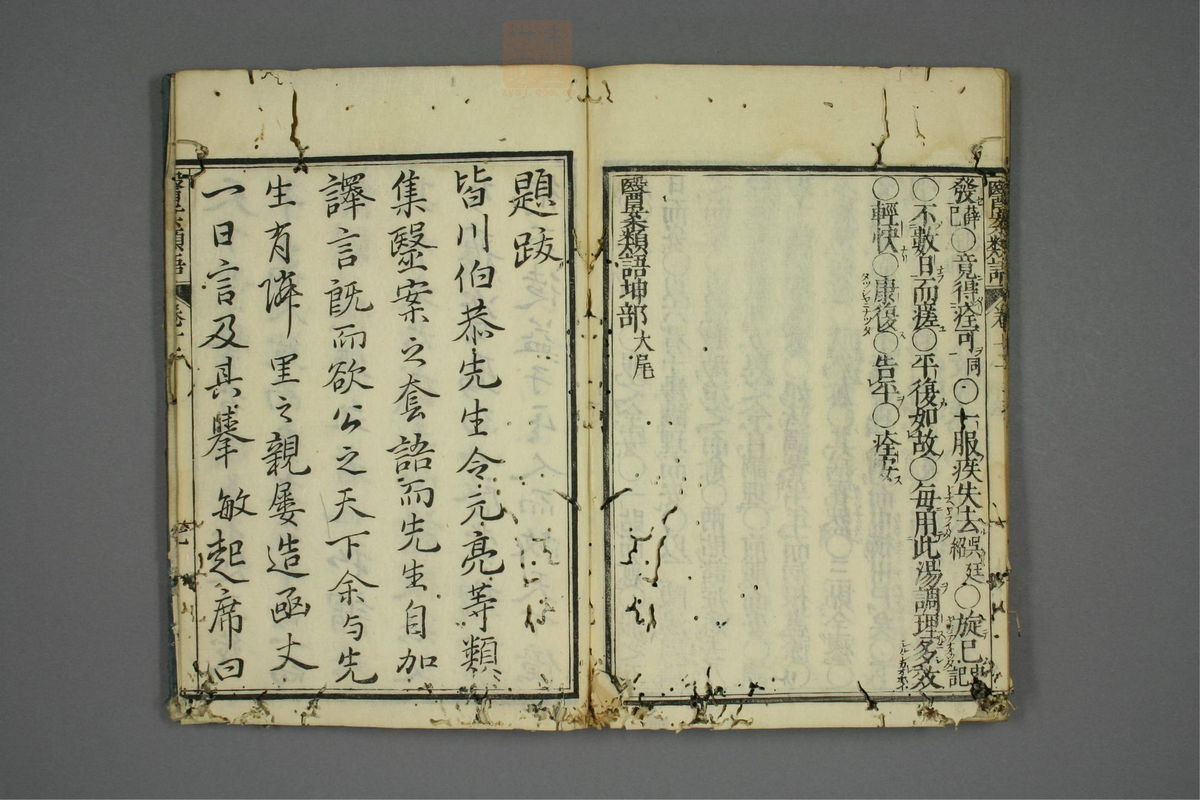 發已薛○竟得痊可同○十六服疾失去吳廷紹○旋已史記
○不數日而瘥○平復如故○毎用此湯調理多效
○輕快○康復○告平○痊安
醫案類語坤部大尾
題跋
皆川伯恭先生令元亮等類
集醫案之套語而先生自加
譯言既而欲公之天下余与先
生有隣里之親屡造函丈
一日言及其擧敏起席曰